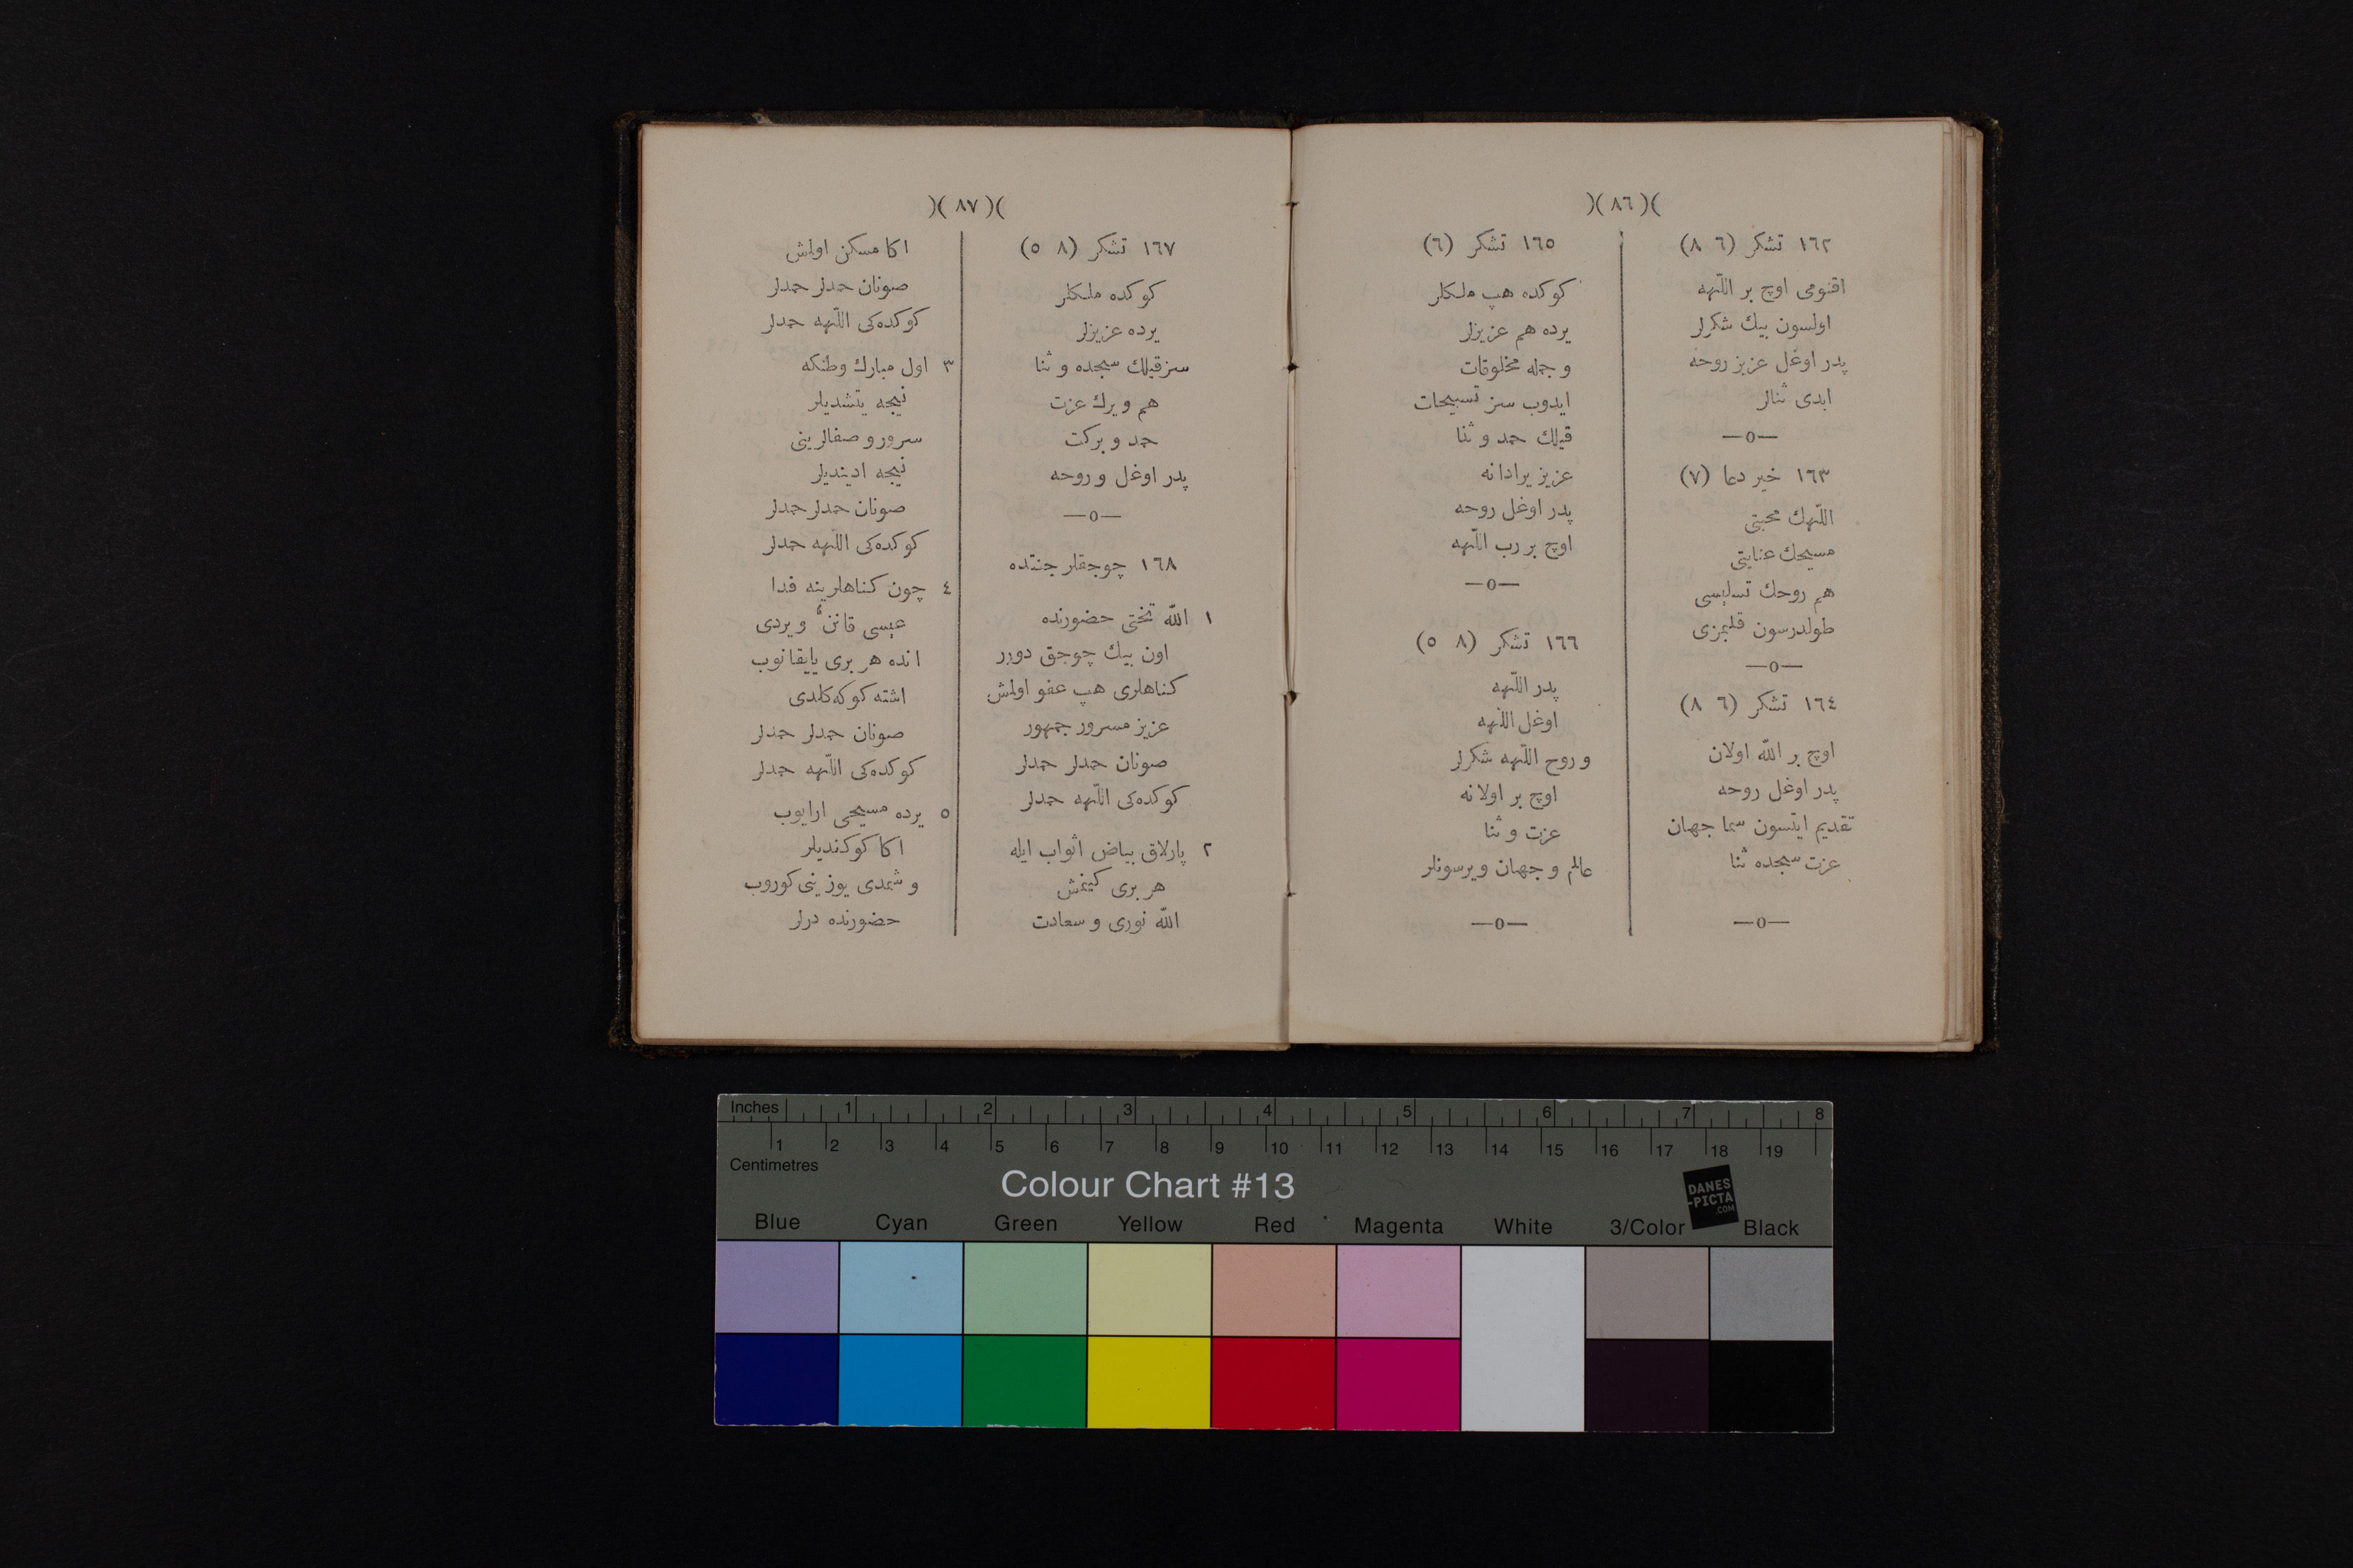 )( ٨٦ )(
١٦٢ تشكر (٦ ٨)
اقنومی اوچ بر اللّٰهه
اولسون بيك شكرلر
پدر اوغل عزيز روحه
ابدی ثنالر
—o—
١٦٣ خير دعا (٧)
اللّٰهك محبتی
مسيحك عنايتی
هم روحك تسليسی
طولدرسون قلبمزی
—o—
١٦٤ تشكر (٦ ٨)
اوچ بر اللّٰه اولان
پدر اوغل روحه
تقديم ايتسون سما جهان
عزت سجده ثنا
—o—
١٦٥ تشكر (٦)
كوكده هپ ملكلر
يرده هم عزيزلر
و جمله مخلوقات
ايدوب سز تسبيحات
قيلك حمد و ثنا
عزيز يرادانه
پدر اوغل روحه
اوچ بر رب اللّٰهه
—o—
١٦٦ تشكر (٨ ٥)
پدر اللّٰهه
اوغل اللّٰهه
و روح اللّٰهه شكرلر
اوچ بر اولانه
عزت و ثنا
عالم و جهان ويرسونلر
—o—
)( ٨٧ )(
١٦٧ تشكر (٨ ٥)
كوكده ملكلر
يرده عزيزلر
سز قيلك سجده و ثنا
هم ويرك عزت
حمد و بركت
پدر اوغل و روحه
—o—
١٦٨ چوجقلر جنتده
١ اللّٰه تختی حضورنده
اون بيك چوجق دورر
كناهلری هپ عفو اولمش
عزيز مسرور جمهور
صونان حمدلر حمدلر
كوكدەكی اللّٰهه حمدلر
٢ پارلاق بياض اثواب ايله
هر بری كيتمش
اللّٰه نوری و سعادت
اكا مسكن اولمش
صونان حمدلر حمدلر
كوكدەكی اللّٰهه حمدلر
٣ اول مبارك وطنكه
نيجه يتشديلر
سرور و صفالرينی
نيجه ايدينديلر
صونان حمدلر حمدلر
كوكدەكی اللّٰهه حمدلر
٤ چون كناهلرينه فدا
عيسی قانن ويردی
انده هر بری يايقانوب
اشته كوكه كلدی
صونان حمدلر حمدلر
كوكدەكی اللّٰهه حمدلر
٥ يرده مسيحی ارايوب
اكا كوكنديلر
و شمدی يوزينی كوروب
حضورنده درلر
Inches 1 2 3 4 5 6 7 8
1 2 3 4 5 6 7 8 9 10 11 12 13 14 15 16 17 18 19
Centimetres
Colour Chart #13
DANES
-PICTA
.COM
Blue Cyan Green Yellow Red Magenta White 3/Color Black